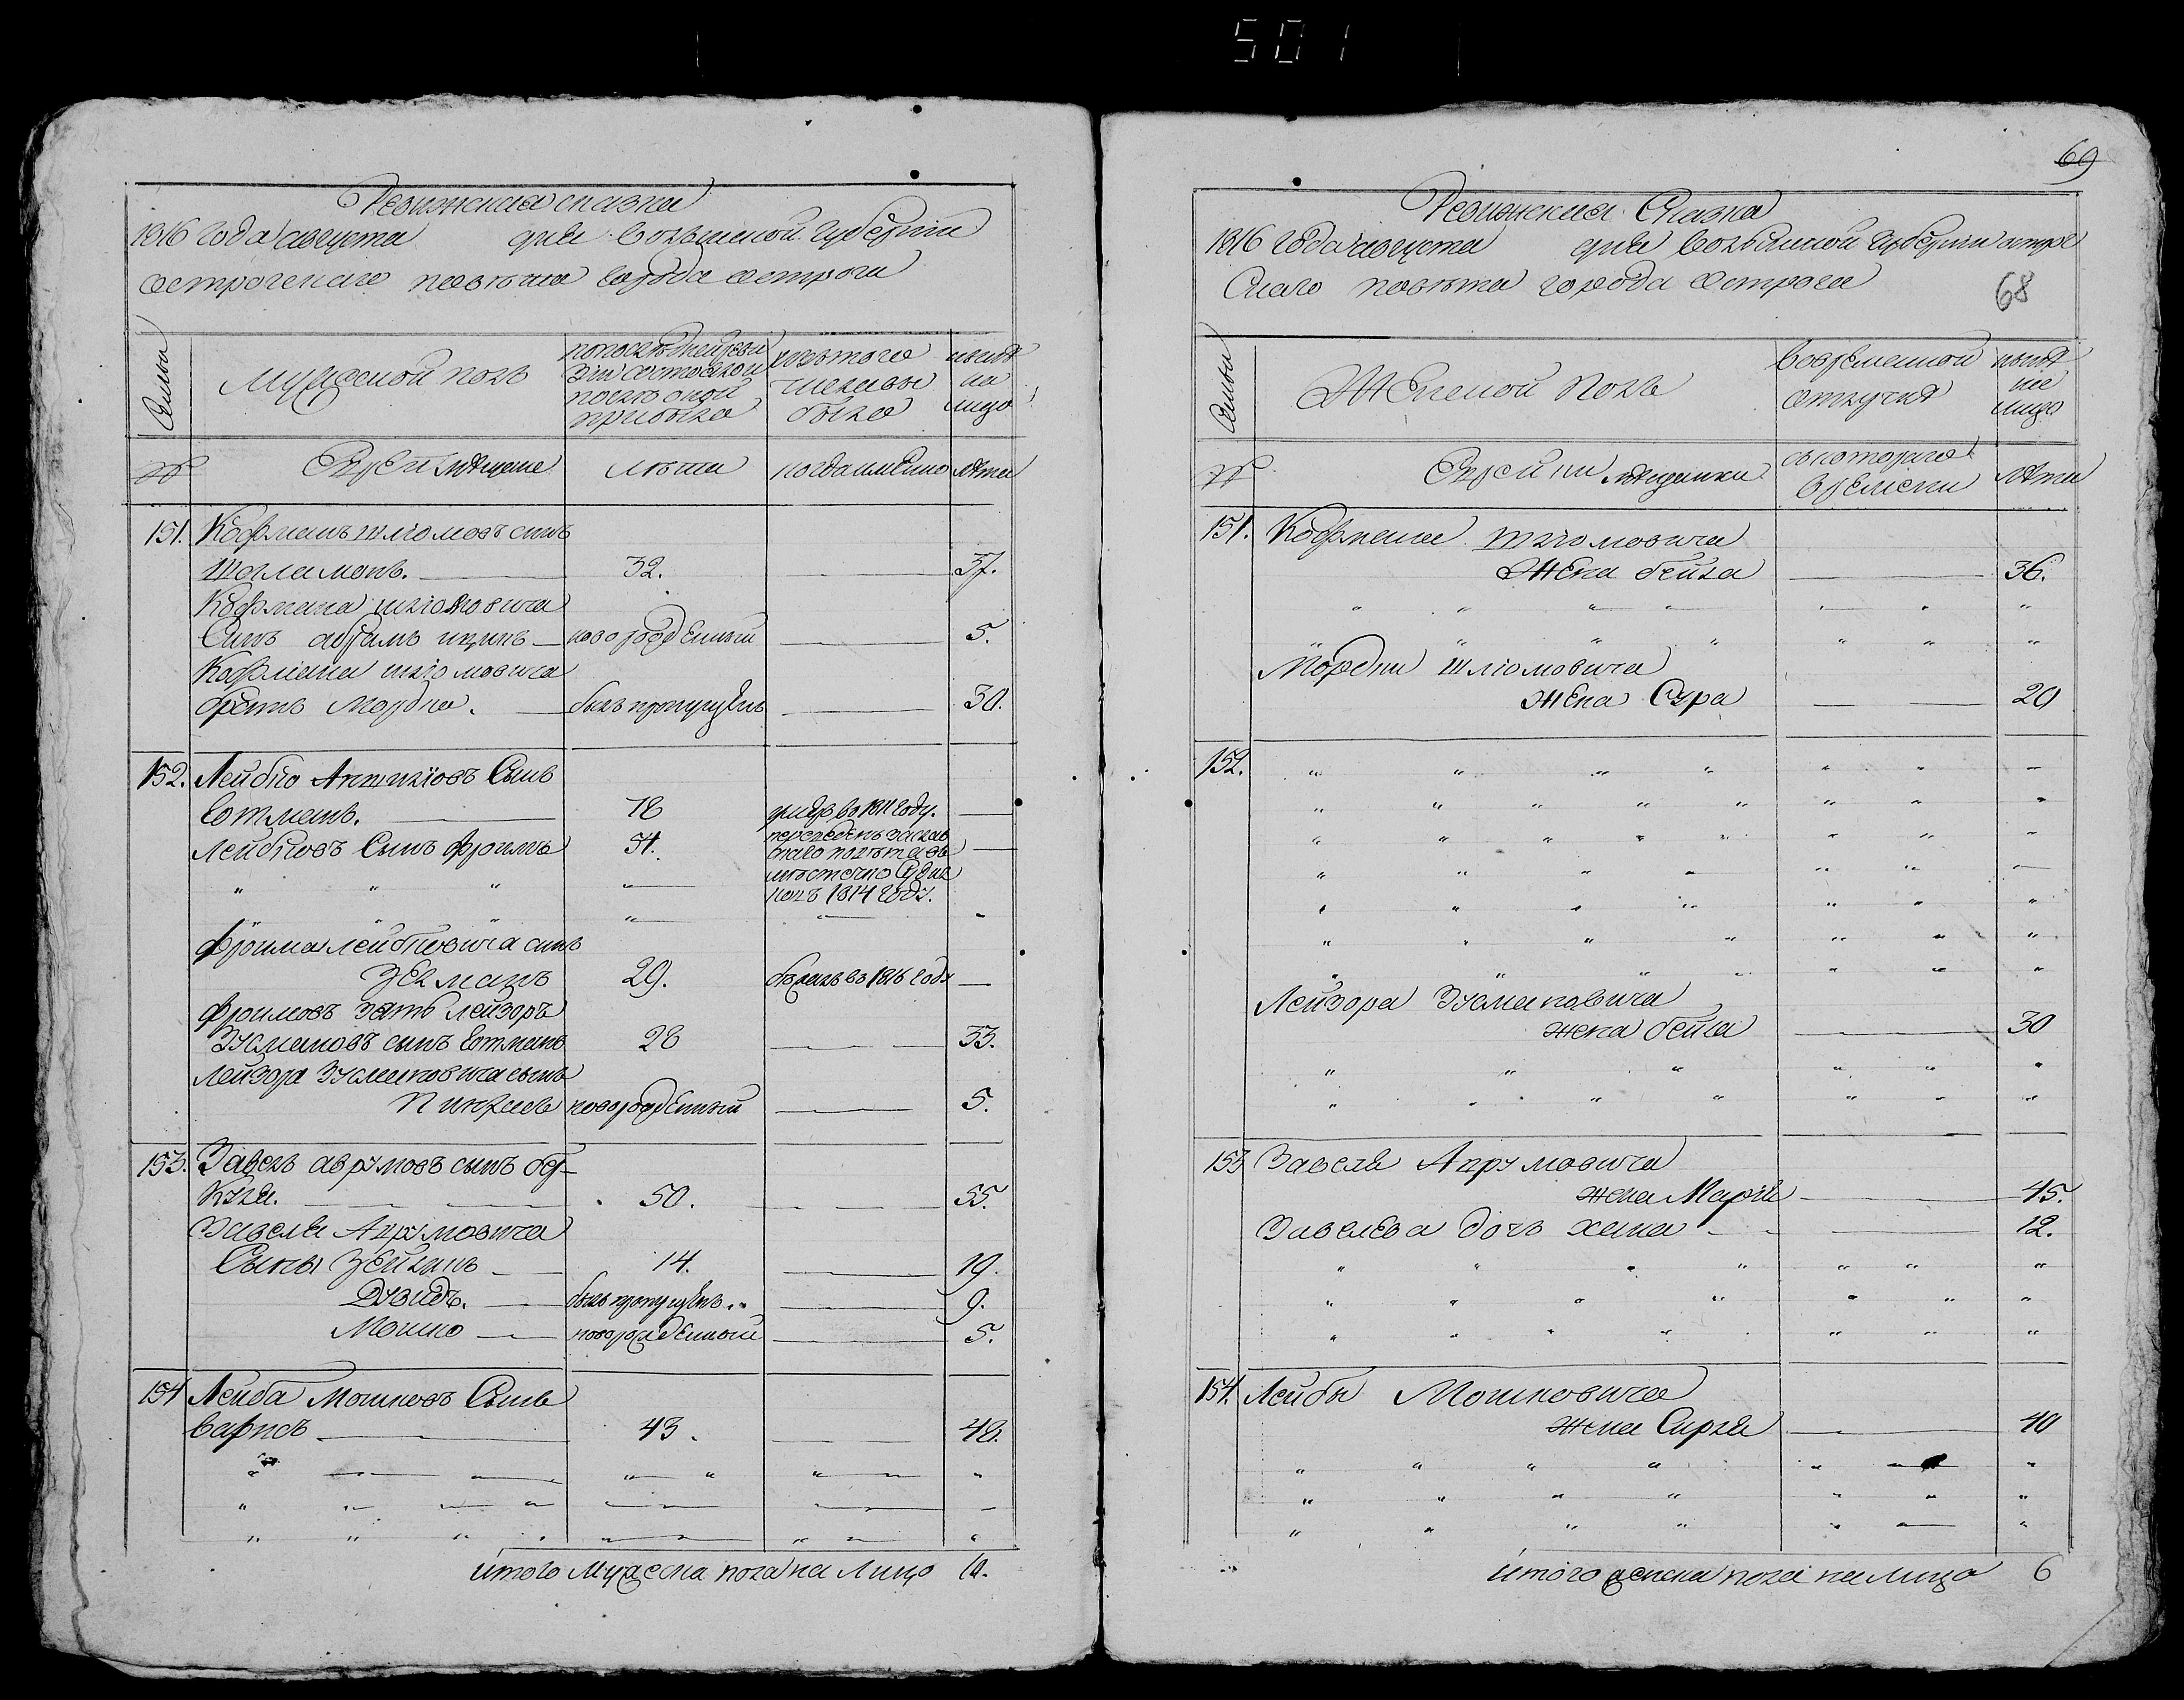 501
Ревижская сказка
1816 года августа дня Волынской Губернии
Острогскаго повъта города Острога
Семьи
Мужеской полъ
по последней ревизіи состояло и после оной прибыло
изъ того числа выбыло
ныне на лицо
№
Евреи мещане
лъта
когда именно
лъта
151. Кофманъ Шліомовъ сынъ
32. 37.
Кофмана Шліомовича
Сынъ Абрамъ Ицикъ — новорожденный 5.
Кофмана Шліомовича
братъ Мордка. былъ пропущенъ 30.
152. Лейбко Сынъ
Готманъ. 78 умре во 1811 году.
Лейбковъ Сынъ Фроимъ 51. переведенъ Заслав
скаго повъта въ
мъстечко
1814 году.
Фроима Лейбковича сынъ
Зелманъ 29. бежалъ въ 1816 году
Фроимовъ зять Лейзоръ
Зусмановъ сынъ Готманъ 28 33.
Лейзора Зусмановича сынъ
Пинхасъ новорожденный 5.
153. Завель Аврумовъ сынъ
50. 55.
Завеля Аврумовича
Сыны Зейманъ 14. 19.
Дувидъ. былъ пропущенъ 9.
Мошко новорожденный 5.
154 Лейба Мошковъ Сынъ
43. 48.
Итого Мужеска пола на Лицо 10.
69
Ревижская Сказка
1816 года августа дня Волынской Губерніи Острог
Скаго повъта города Острога
68
Семьи
Женской полъ
во временной отлучке
ныне на лицо
№
Еврейки мещанки
съ котораго времени
лъта
151. Кофмана Шліомовича
Жена Бейла 36.
Мордки Шліомовича
Жена Сура 20
152.
Лейзора Зусмановича
жена Бейла 30
153 Завеля Аврумовича
жена Маріа 45.
Завелева дочь Хана 12.
154. Лейбы Мошковича
жена Сирля 40
Итого женска пола на лицо 6